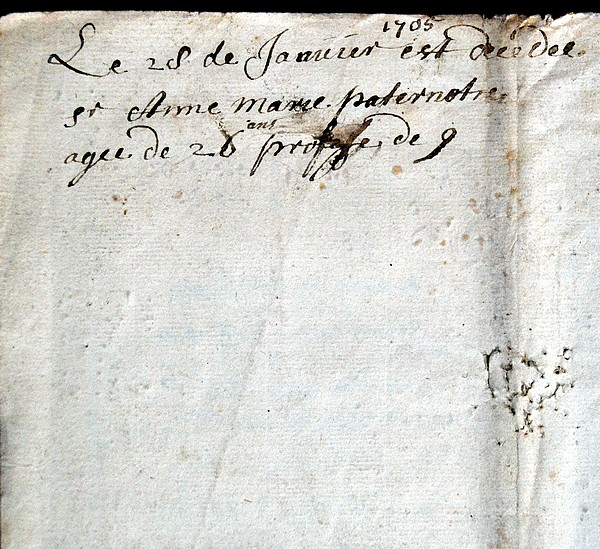 1705
Le 28 de Janvier est décédée
sr Anne marie paternotre
ans
agee de 26 professe de 9